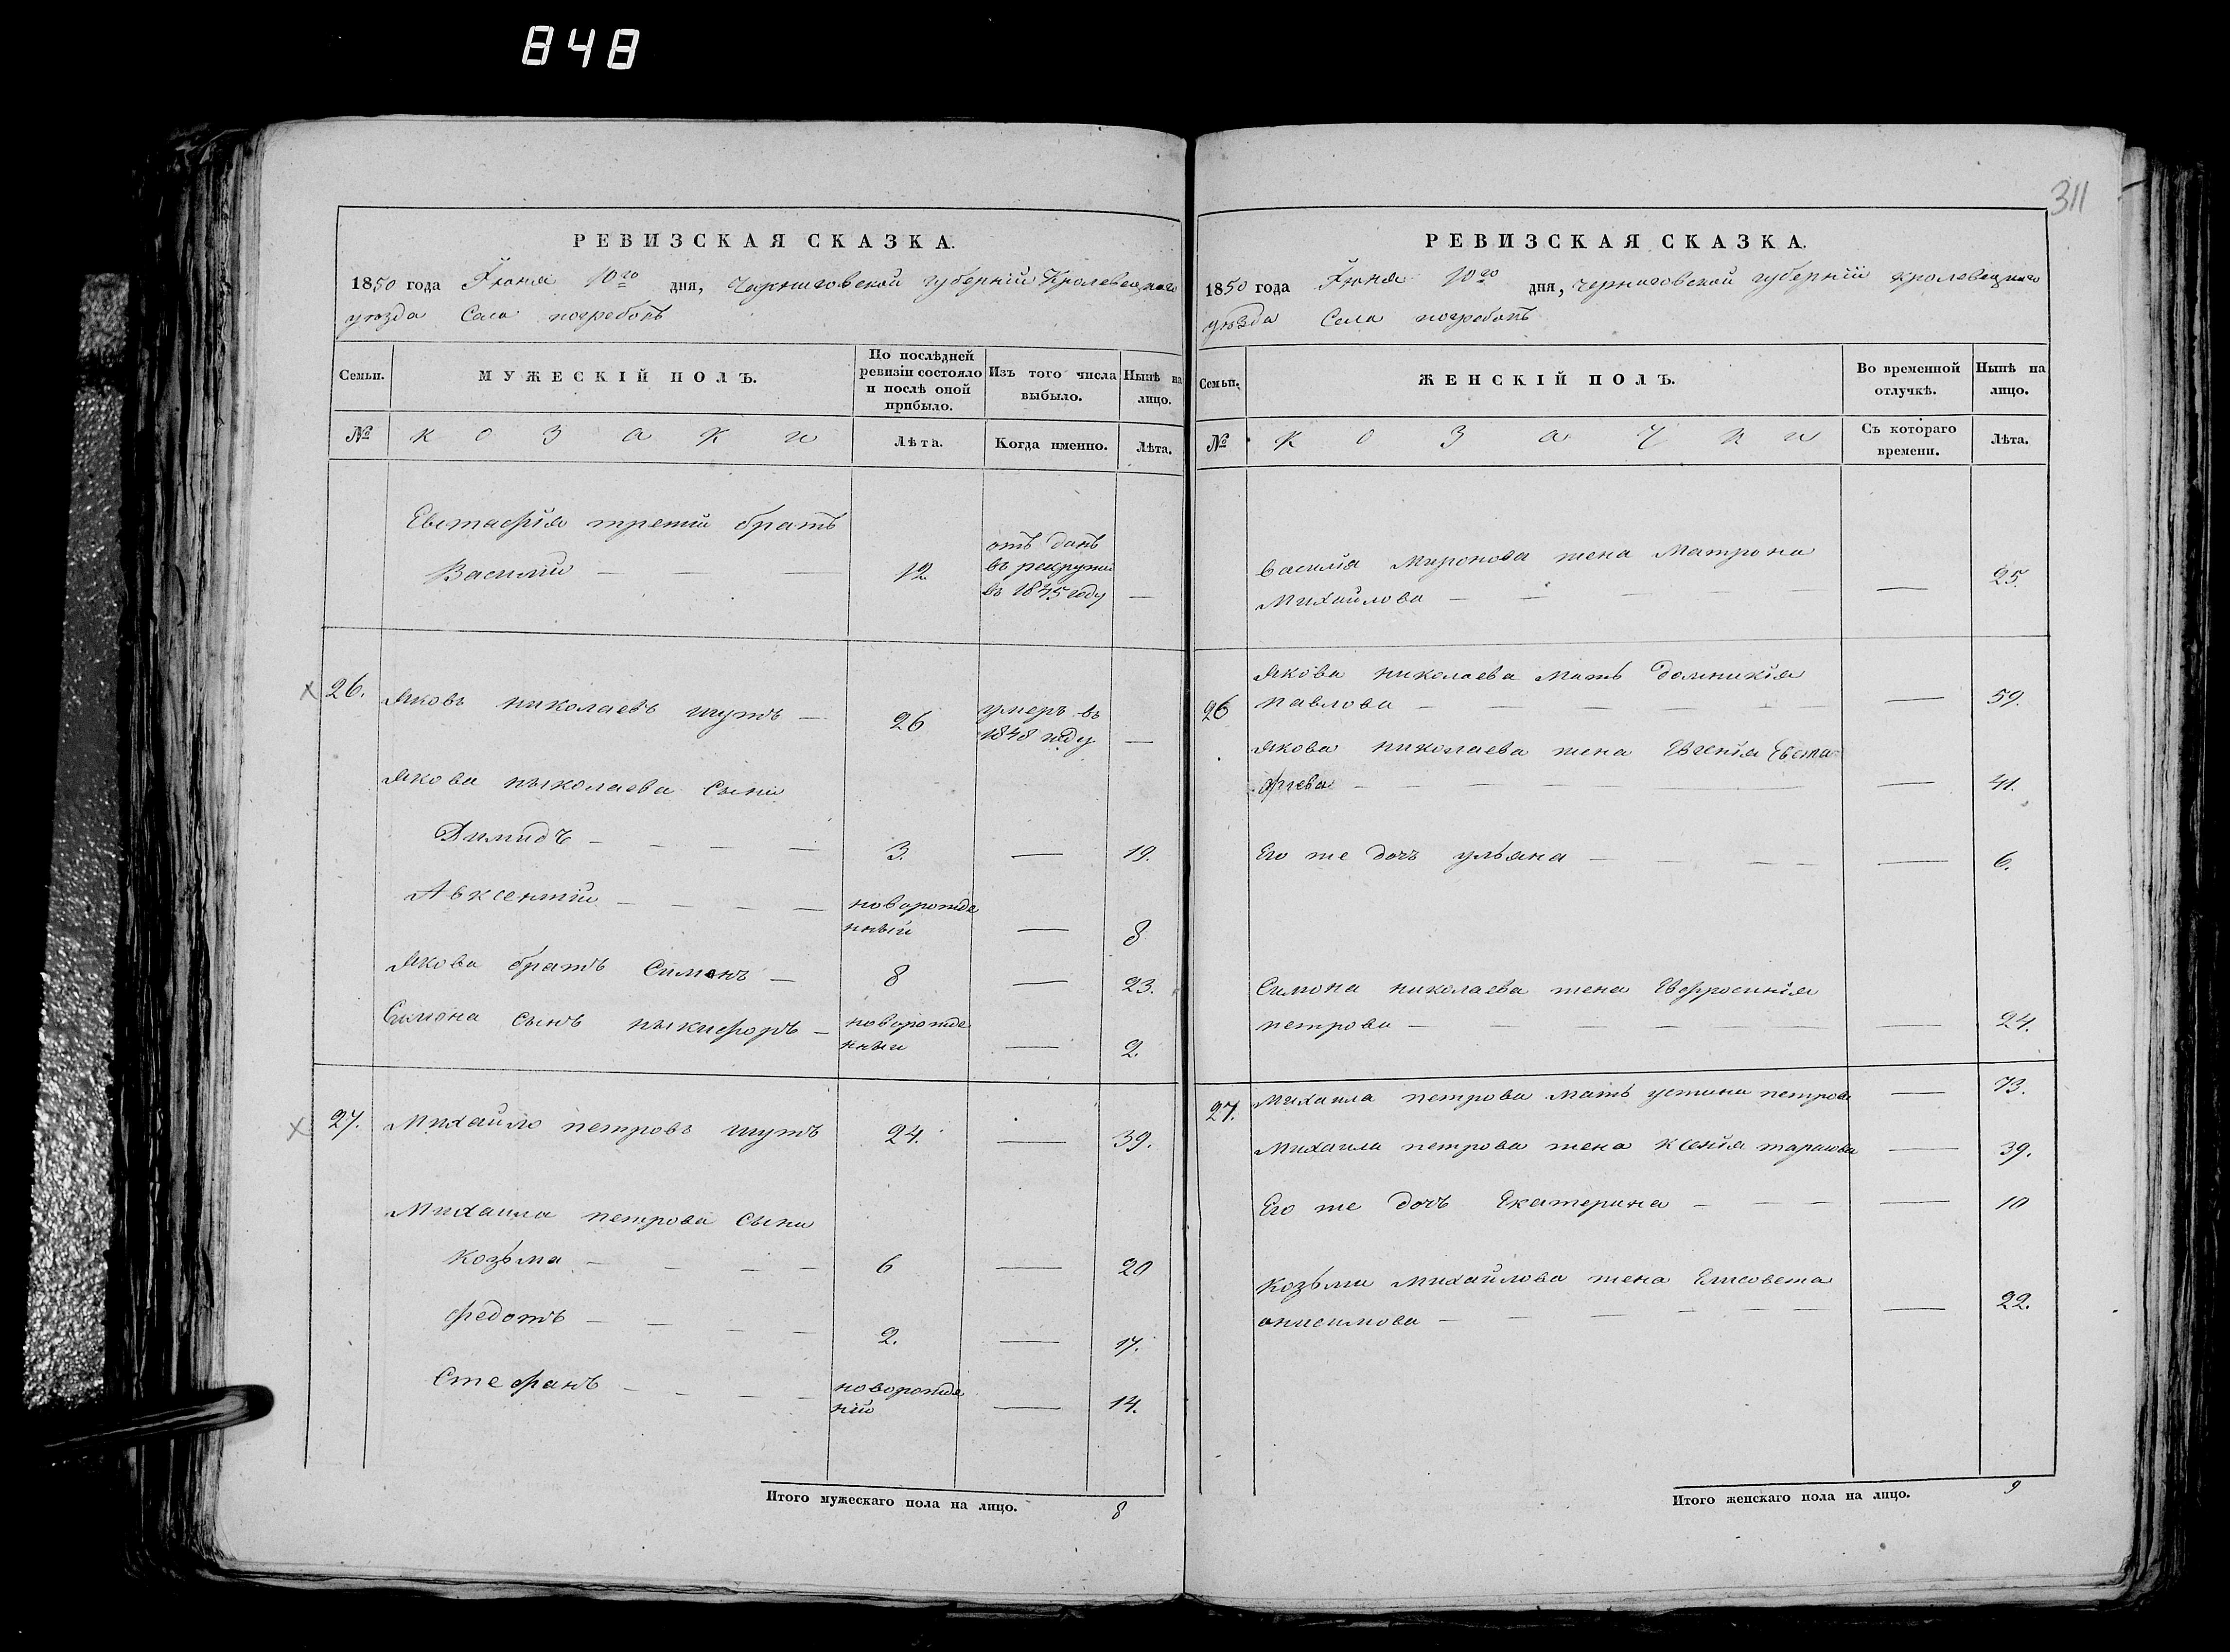 848
311
РЕВИЗСКАЯ СКАЗКА.
1850 года Іюня 10го дня, Черниговской губерніи Кролевецкаго
уезда Села погребокъ
Семьи.
МУЖЕСКІЙ ПОЛЪ.
По послѣдней ревизіи состояло и послѣ оной прибыло.
Изъ того числа выбыло.
Нынѣ на лицо.
№
козаки
Лѣта.
Когда именно.
Лѣта.
Евстафія третій братъ
Василій — — — 12 отъ данъ въ рекруты въ 1845 году —
26. Яковъ николаевъ шутъ — 26 умеръ въ 1848 году —
Якова николаева Сыни
Димидъ — — — — 3. — 19.
Авксентій — — — — новорожденный — 8
Якова братъ Симонъ — 8 — 23.
Симона сынъ никифоръ — новорожденый — 2.
27. Михайло петровъ шутъ 24. — 39.
Михаила петрова сыни
козьма — — — — 6 — 20
федотъ — — — — 2. — 17.
Стефанъ — — — — новорожденій — 14.
Итого мужескаго пола на лицо. 8
РЕВИЗСКАЯ СКАЗКА.
1850 года Іюня 10го дня, черниговской губерніи кролевецкаго
уѣзда Села погребокъ
Семьи.
ЖЕНСКІЙ ПОЛЪ.
Во временной отлучкѣ.
Нынѣ на лицо.
№
козачки
Съ котораго времени.
Лѣта.
василія Миронова жена Матрона
Михайлова — — — — — — 25.
Якова николаева мать домникія
26 павлова — — — — — — 59.
Якова николаева жена Евгенія Евста
фіева — — — — — — 41.
Его же дочь ульяна — — — — — 6.
Симона николаева жена Евфросинія
петрова — — — — 24.
27. Михаила петрова мать устина петрова — 73.
Михаила петрова жена ксенія тарасова — 39.
Его же дочь Екатерина — — — — 10
козьми михайлова жена Елисовета
онисимова — — — — — — — 22.
Итого женскаго пола на лицо. 9